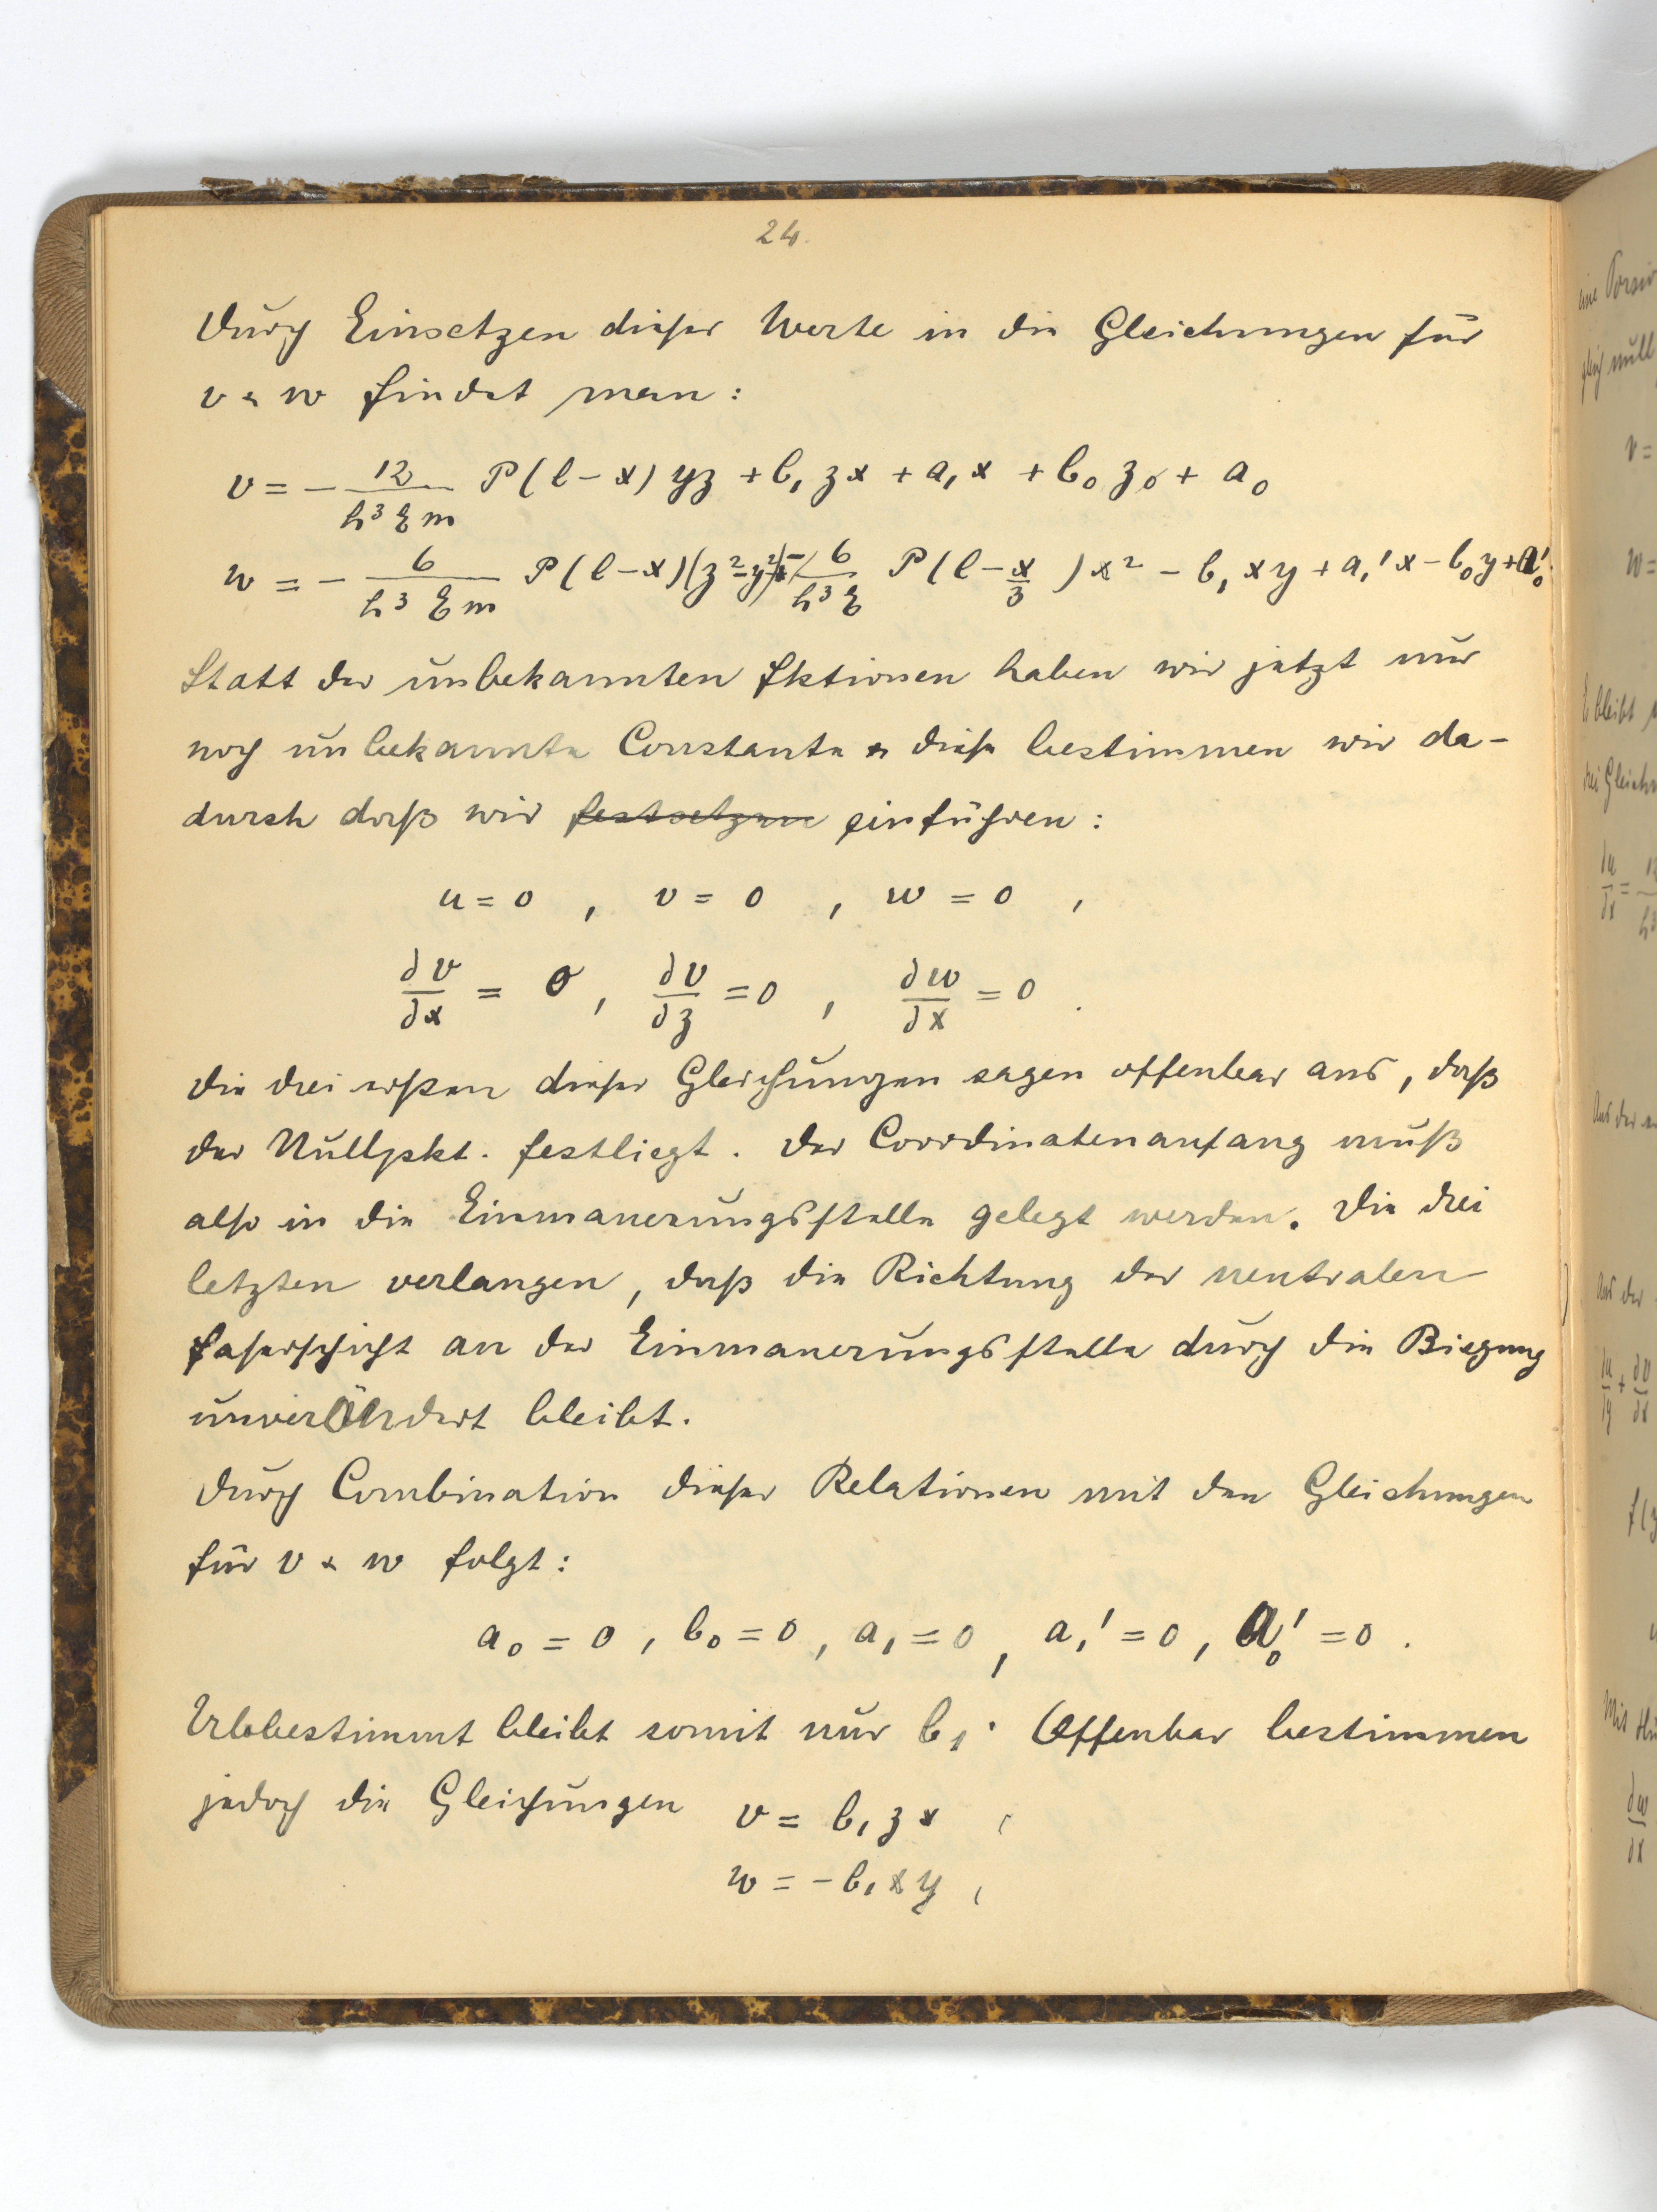 24.
Durch Einsetzen dieser Werte in die Gleichungen für
v & w findet man:
v = - 12/(h³ E m) P(l-x) yz + b₁ zx + a₁ x + b₀ z + a₀
w = - 6/(h³ E m) P(l-x)(z²-y²) - 6/(h³ E) P(l - x/3) x² - b₁ xy + a₁' x - b₀ y + a₀'
Statt der unbekannten Fktionen haben wir jetzt nur
noch unbekannte Constante & diese bestimmen wir da-
durch daß wir festsetzen einführen:
u = 0 , v = 0 , w = 0 ,
∂v/∂x = 0 , ∂v/∂z = 0 , ∂w/∂x = 0 .
Die drei ersten dieser Gleichungen sagen offenbar aus, daß
der Nullpkt. festliegt. Der Coordinatenanfang muß
also in die Einmauerungsstelle gelegt werden. Die drei
letzten verlangen, daß die Richtung der neutralen
Faserschicht an der Einmauerungsstelle durch die Biegung
unverändert bleibt.
Durch Combination dieser Relationen mit den Gleichungen
für v & w folgt:
a₀ = 0 , b₀ = 0 , a₁ = 0 , a₁' = 0 , a₀' = 0 .
Unbestimmt bleibt somit nur b₁. Offenbar bestimmen
jedoch die Gleichungen v = b₁ z x ,
w = - b₁ x y ,